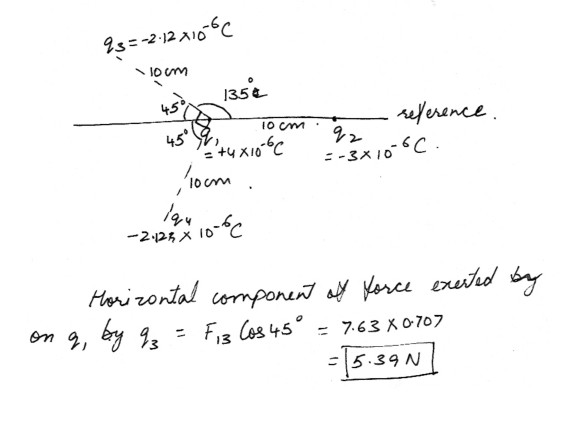 q3 = -2.12 x10^-6 C
10 cm
135°
45°
reference.
10 cm .
45°
q1
= +4 x10^-6 C
q2
= -3 x 10^-6 C .
10 cm .
q4
-2.123 x 10^-6 C
Horizontal component of force exerted by
on q1 by q3 = F13 Cos 45° = 7.63 X 0.707
= 5.39 N